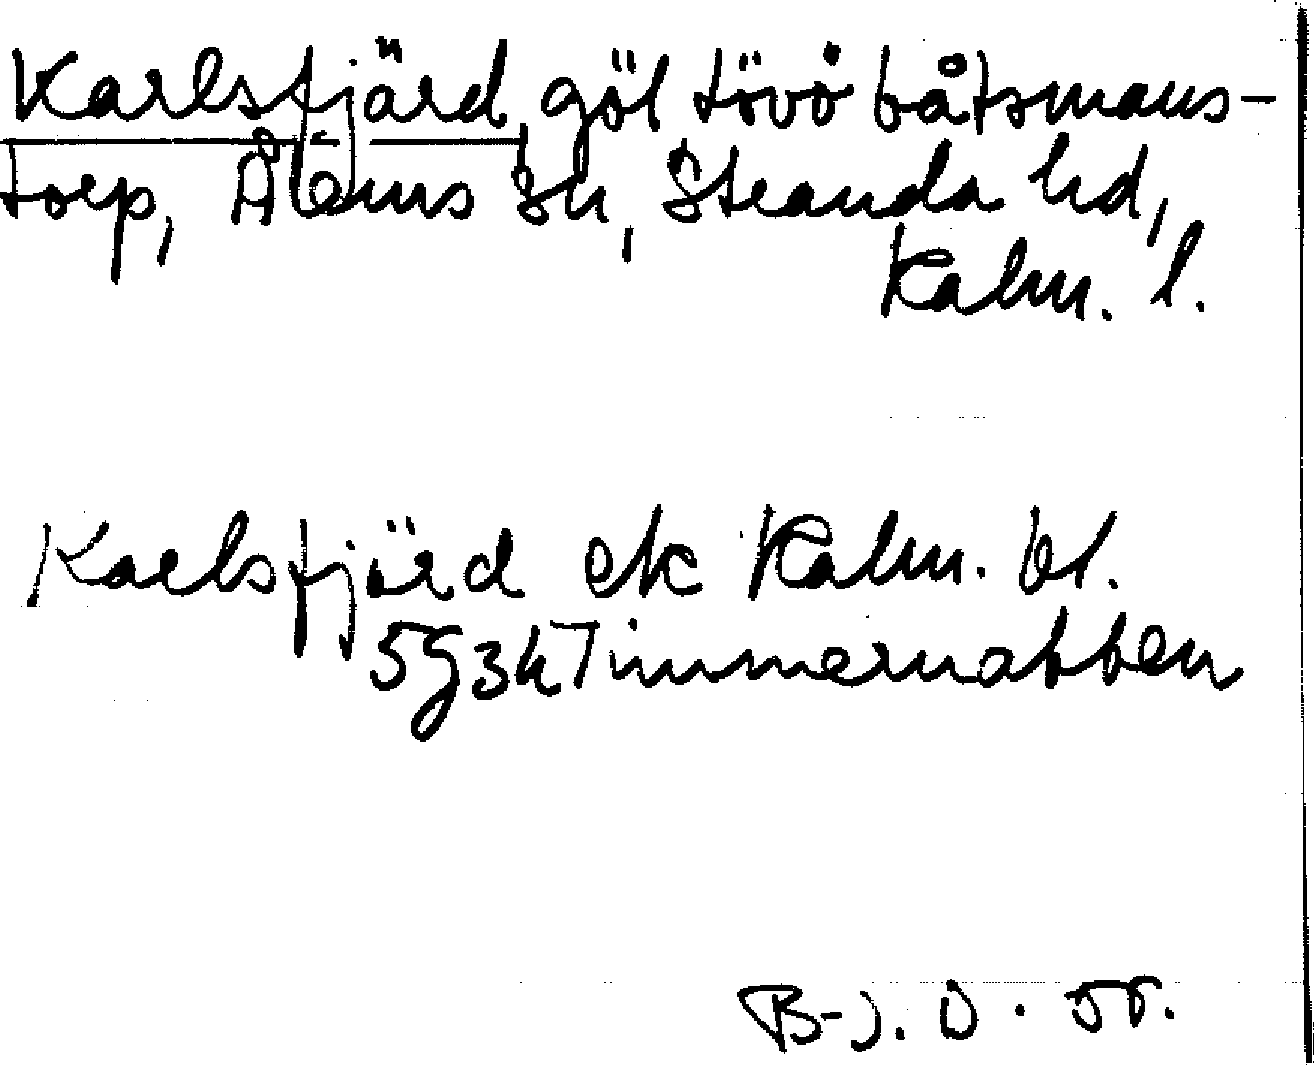 Karlsfjärd, göl tövö båtsmans-
torp, Ålems sn, Stranda hd,
Kalm. l.
Karlsfjärd ek Kalm. bl.
5G3h Timmernabben
B-J. O. 55.